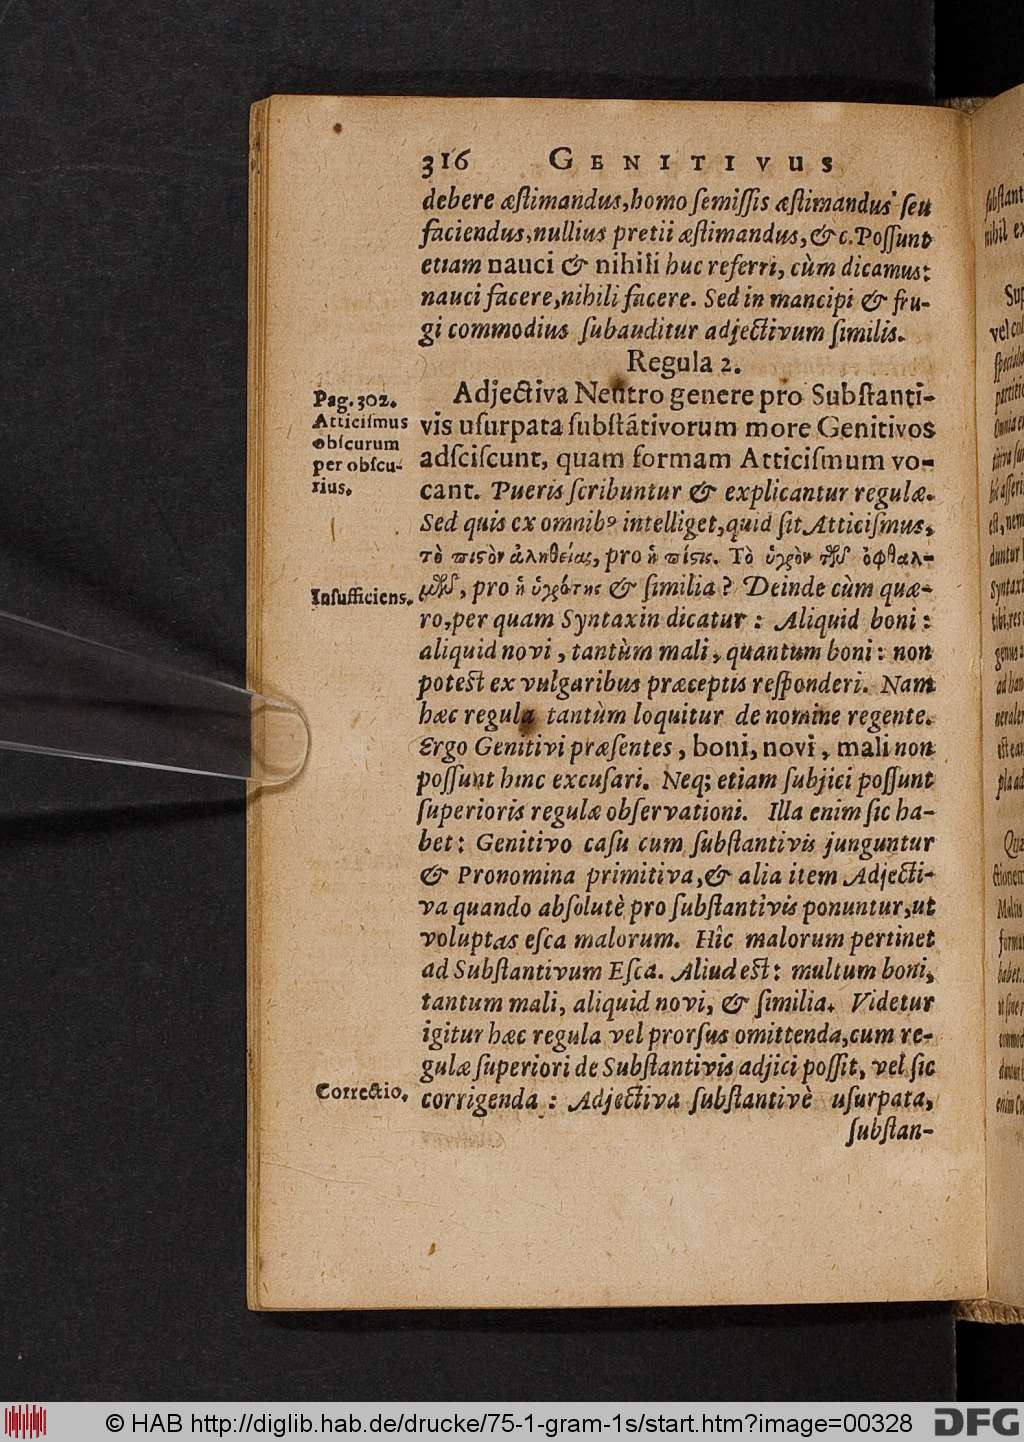 316 GENITIVUS
debere æſtimandus, homo ſemiſſis æſtimandus ſeu
faciendus, nullius pretii æſtimandus, &c. Poſſunt
etiam nauci & nihili huc referri, cùm dicamus:
nauci facere, nihili facere. Sed in mancipi & fru-
gi commodius ſubauditur adjectivum ſimilis.
Regula 2.
Pag. 302.
Atticiſmus
obſcurum
per obſcu-
rius.
Adjectiva Neutro genere pro Subſtanti-
vis uſurpata ſubſtãtivorum more Genitivos
adſciſcunt, quam formam Atticiſmum vo-
cant. Pueris ſcribuntur & explicantur regulæ.
Sed quis ex omnibꝰ intelliget, quid ſit Atticiſmus,
τὸ πιϛὸν ἀληθείας, pro ἡ πίϛις. Τὸ ὑγρὸν τῶν ὀφθαλ-
Inſufficiens.
μῶν, pro ἡ ὑγρότης & ſimilia? Deinde cùm quæ-
ro, per quam Syntaxin dicatur: Aliquid boni:
aliquid novi, tantùm mali, quantum boni: non
poteſt ex vulgaribus præceptis reſponderi. Nam
hæc regula tantùm loquitur de nomine regente.
Ergo Genitivi præſentes, boni, novi, mali non
poſſunt hinc excuſari. Neq; etiam ſubjici poſſunt
ſuperioris regulæ obſervationi. Illa enim ſic ha-
bet: Genitivo caſu cum ſubſtantivis junguntur
& Pronomina primitiva, & alia item Adjecti-
va quando abſolutè pro ſubſtantivis ponuntur, ut
voluptas eſca malorum. Hîc malorum pertinet
ad Subſtantivum Eſca. Aliud eſt: multum boni,
tantum mali, aliquid novi, & ſimilia. Videtur
igitur hæc regula vel prorſus omittenda, cum re-
gulæ ſuperiori de Subſtantivis adjici poſſit, vel ſic
Correctio.
corrigenda: Adjectiva ſubſtantivè uſurpata,
ſubſtan-
© HAB http://diglib.hab.de/drucke/75-1-gram-1s/start.htm?image=00328
DFG